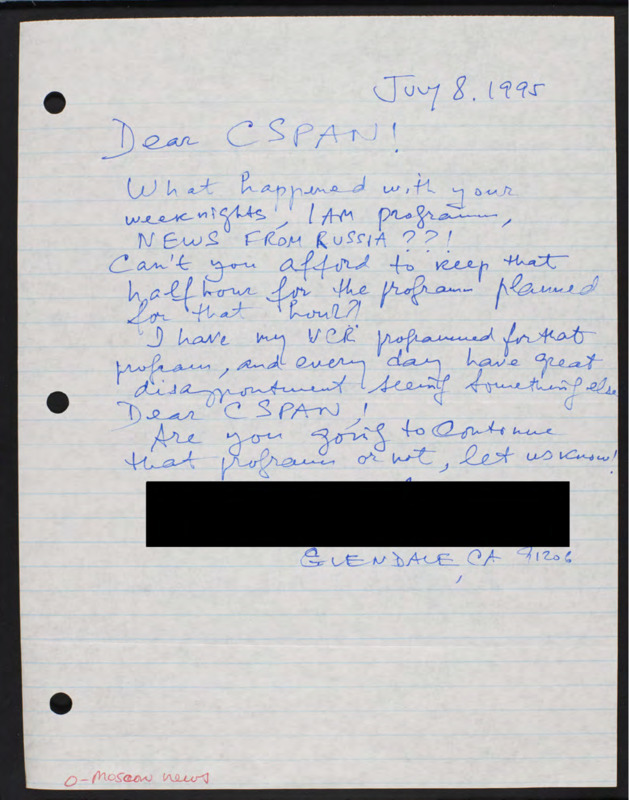 July 8. 1995
Dear CSPAN!
What happened with your
weeknights', 1AM program,
NEWS FROM RUSSIA ??!
Can't you afford to keep that
half hour for the program planned
for that hour?!
I have my VCR programmed for that
program, and every day have great
disappointment seeing something else
Dear CSPAN!
Are you going to continue
that program or not, let us know!
GLENDALE, CA 91206
0-Moscow news